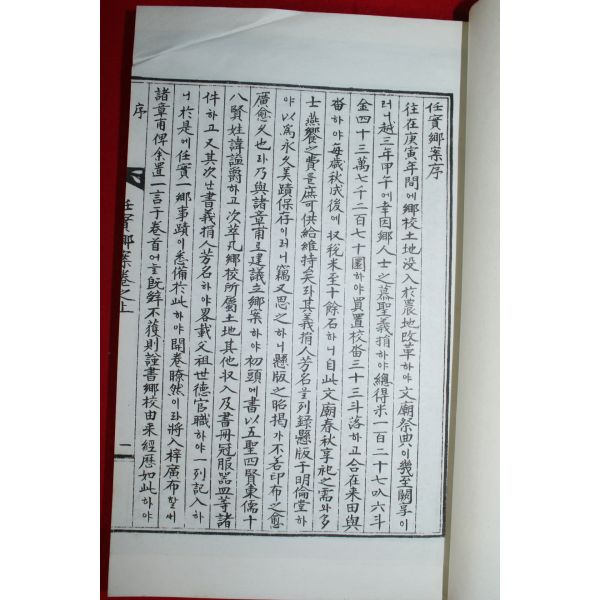 任實鄉案序
往在庚寅年間에鄉校土地没入於農地改革하야文廟祭典이幾至闕享이
러니越三年甲午에幸因鄉人士之慕聖義捐하야總得米一百二十七叺六斗
金四十三萬七千二百七十圜하야買置校畓三十三斗落하고合在来田與
畓하야每歲秋成後에收稅米至十餘石하니自此文廟春秋享祀之需와多
士燕饗之費를庶可供給維持矣라其義捐人芳名을列録懸版于明倫堂하
야以爲永久美蹟保存이러니竊又思之하니懸版之昭揭가不若印布之愈
廣愈久也라乃與諸章甫로建議立鄉案하야初頭에書以五聖四賢東儒十
八賢姓諱諡爵하고次萃凡鄉校所屬土地其他收入及書冊冠服器皿等諸
件하고又其次난書義捐人芳名하야畧載父祖世德官職하야一列記入하
니於是에任實一鄉事蹟이悉備於此하야開卷瞭然이라將入梓廣布할새
諸章甫俾余置一言于卷首어늘旣辭不獲則詮書鄉校由来經歷如此하야
序
任實鄉案卷之上
一